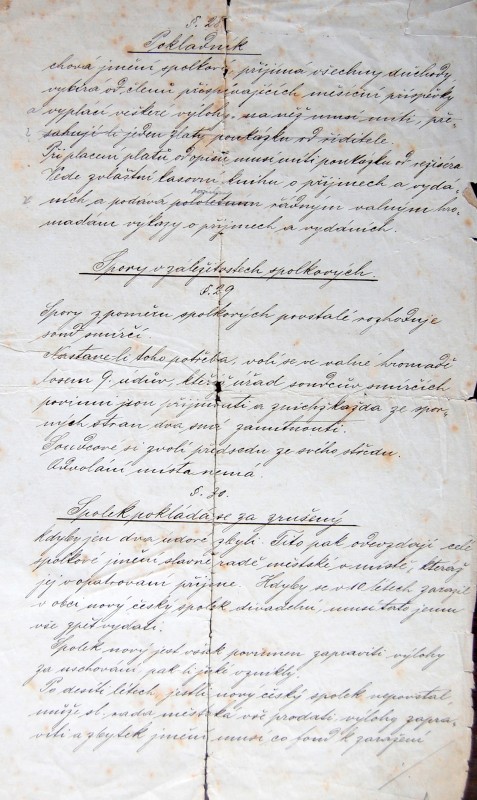 §. 28
Pokladník
chová jmění spolkové, přijímá všechny důchody
vybírá od členů přispívajících měsíční příspěvky
a vyplácí veškeré výlohy, na něž musí míti, pře-
sahují-li jeden zlatý poukázku od ředitele.
Při placení platů od opisů musí míti poukázku od režiséra
Vede zvláštní kasovní knihu o příjmech a vydá-
ních a podává pololetním řádným valným hro-
madám výkazy o příjmech a vydáních.
Spory v záležitostech spolkových.
§. 29
Spory z poměru spolkových povstalé rozhoduje
soud smírčí
Nastane-li toho potřeba, volí se ve valné hromadě
losem 9. údův, kteříž úřad soudcův smírčích
povinni jsou přijmouti a z nichž každá ze spor-
ných stran dva smá zamítnouti.
Soudcové si zvolí předsedu ze svého středu.
Odvolání místa nemá.
§. 30.
Spolek pokládá se za zrušený
kdyby jen dva údové zbyli. Tito pak odevzdají celé
spolkové jmění slavné radě městské v místě, kteráž
jej v opatrování přijme. Kdyby se v 10 letech zarazil
v obci nový český spolek divadelní, musí tato jemu
vše zpět vydati.
Spolek nový jest však povinen zapraviti výlohy
za uschování pak-li jaké vznikly.
Po desíti létech, jestli nový český spolek nepovstal,
může sl. rada městská vše prodati, výlohy zapra-
viti a zbytek jmění musí co fond k zaražení